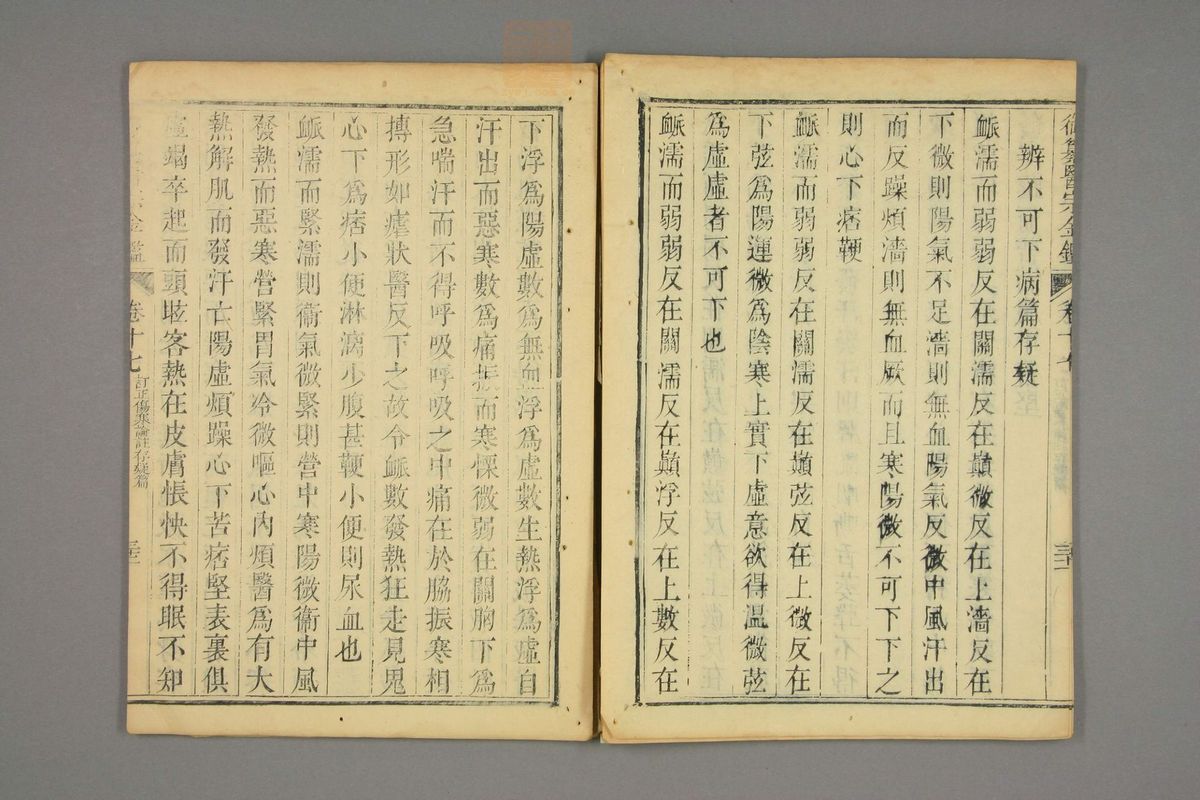 御纂醫宗金鑑 卷十七
辨不可下病篇存疑
脈濡而弱弱反在關濡反在巔微反在上濇反在
下微則陽氣不足濇則無血陽氣反微中風汗出
而反躁煩濇則無血厥而且寒陽微不可下下之
則心下痞鞕
脈濡而弱弱反在關濡反在巔弦反在上微反在
下弦為陽運微為陰寒上實下虛意欲得溫微弦
為虛虛者不可下也
脈濡而弱弱反在關濡反在巔浮反在上數反在
下浮為陽虛數為無血浮為虛數生熱浮為虛自
汗出而惡寒數為痛振而寒慄微弱在關胸下為
急喘汗而不得呼吸呼吸之中痛在於脇振寒相
搏形如瘧狀醫反下之故令脈數發熱狂走見鬼
心下為痞小便淋漓少腹甚鞕小便則尿血也
脈濡而緊濡則衞氣微緊則營中寒陽微衞中風
發熱而惡寒營緊胃氣冷微嘔心內煩醫為有大
熱解肌而發汗亡陽虛煩躁心下苦痞堅表裏俱
虛竭卒起而頭眩客熱在皮膚悵怏不得眠不知
金鑑 卷十七 訂正傷寒論註存疑篇